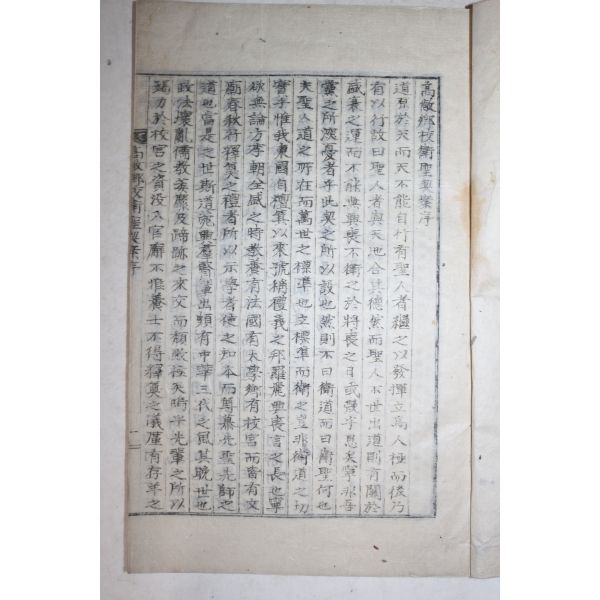 高敞鄕校衛聖契案序
道原於天而天不能自行有聖人者繼之以發揮立爲人極而後乃
有以行故曰聖人者與天地合其德然而聖人不世出道則有關於
盛衰之運而不能無興喪不衛之於將喪之日或幾乎息矣寧非吾
黨之所深憂者乎此契之所以設也然則不曰衛道而曰衛聖何也
夫聖人道之所在而萬世之標準也立標準而衛之豈非衛道之切
實乎惟我東國自檀箕以來號稱禮義之邦羅麗興喪言之長也寧
欲無論方李朝全盛之時敎養有法國有太學鄕有校宮而皆有文
廟春秋行釋奠之禮者所以示學者使之知本而篤慕先聖先師之
道也當是之世斯道宛興羣賢輩出頗有中華三代之風其晩世也
政法壞亂儒敎萎靡及蹄跡之來交而頹敗極矣時半先輩之所以
竭力於校宮之資没入官廨不惟養士不得釋奠之儀廑有存羊之
高敞鄕校衛聖契案序
一